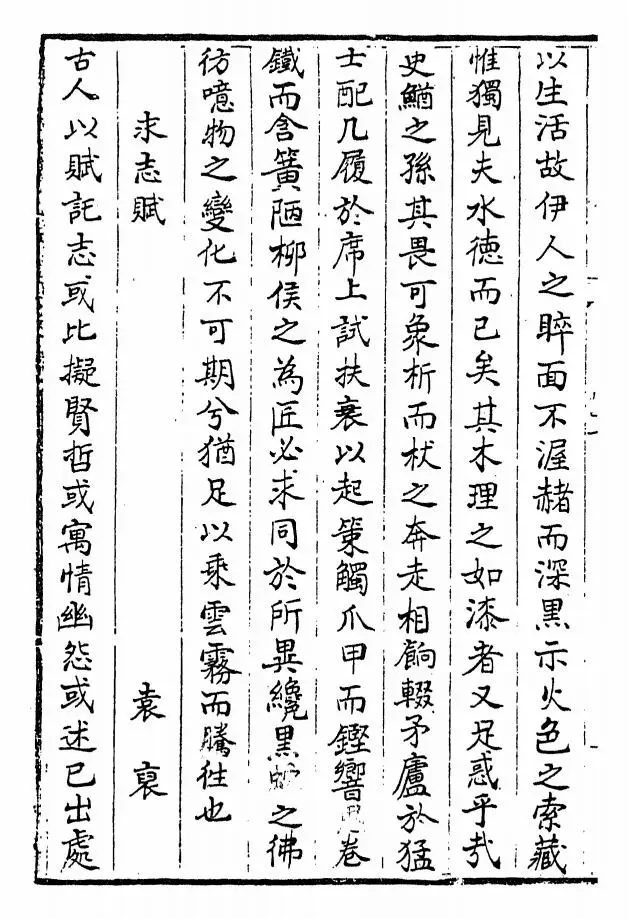 以生活故伊人之睟面不渥赭而深黒示火色之索藏
惟獨見夫水徳而已矣其木理之如漆者又足惑乎哉
史鰌之孫其畏可象析而杖之奔走相餉輟矛廬於猛
士配几履於席上試扶衰以起策觸爪甲而鏗響 卷
鐵而含簧陋栁侯之為匠必求同於所異纔黒 之彿
彷噫物之變化不可期兮猶足以乘雲霧而騰往也
求志賦 袁裒
古人以賦託志或比擬賢哲或寓情幽怨或述已出處